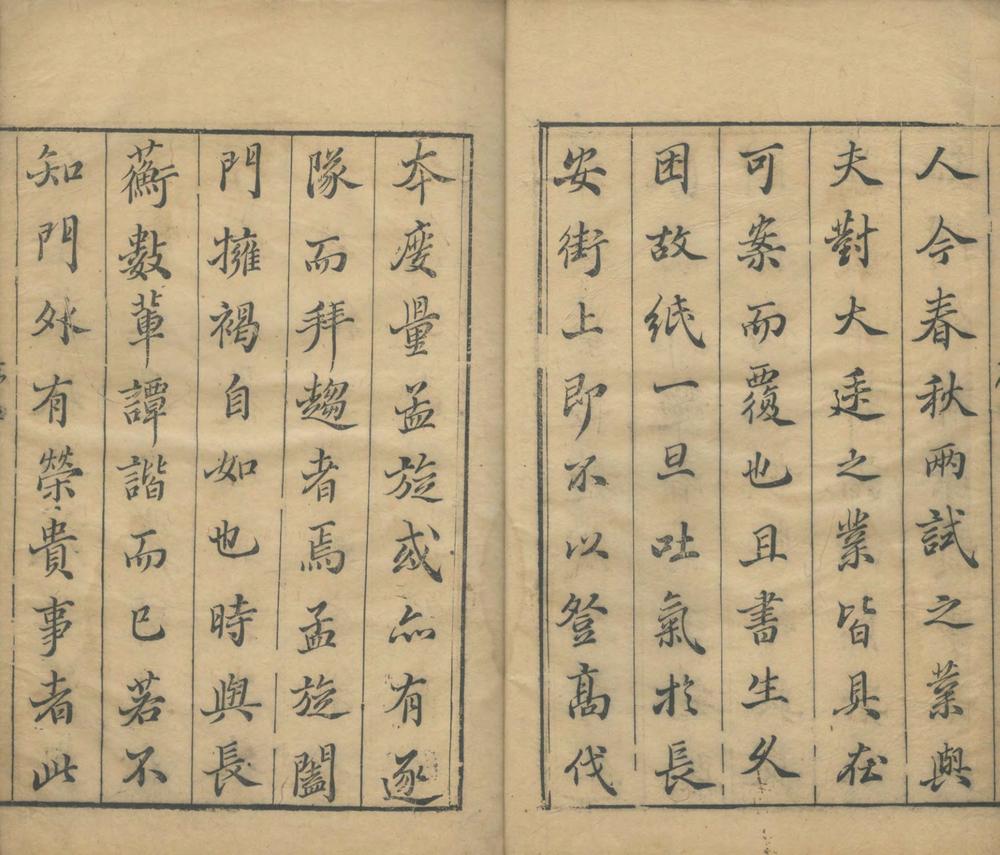 人今春秋兩試之業與
夫對大廷之業皆具在
可案而覆也且書生久
困故紙一旦吐氣於長
安街上即不以登高伐
本度量孟旋或亦有逐
隊而拜趨者焉孟旋闔
門擁褐自如也時與長
蘅數輩譚諧而已若不
知門外有榮貴事者此